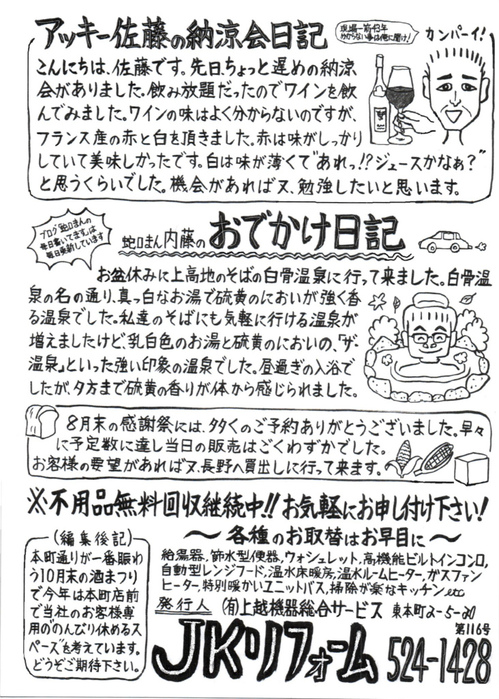 アッキー佐藤の納涼会日記
現場一筋43年
わからない事は俺に聞け!
カンパーイ!
こんにちは、佐藤です。先日、ちょっと遅めの納涼
会がありました。飲み放題だったのでワインを飲
んでみました。ワインの味はよく分からないのですが、
フランス産の赤と白を頂きました。赤は味がしっかり
していて美味しかったです。白は味が薄くて"あれっ!?ジュースかなぁ?"
と思うくらいでした。機会があれば又、勉強したいと思います。
ブログ「蛇口まんの
毎日書いてます」は
毎日更新しています
蛇口まん内藤の おでかけ日記
お盆休みに上高地のそばの白骨温泉に行って来ました。白骨温
泉の名の通り、真っ白なお湯で硫黄のにおいが強く香
る温泉でした。私達のそばにも気軽に行ける温泉が
増えましたけど、乳白色のお湯と硫黄のにおいの、「ザ・
温泉」といった強い印象の温泉でした。昼過ぎの入浴で
したが、夕方まで硫黄の香りが体から感じられました。
8月末の感謝祭には、多くのご予約ありがとうございました。早々
に予定数に達し当日の販売はごくわずかでした。
お客様の要望があれば又、長野へ買出しに行って来ます。
※不用品無料回収継続中!!お気軽にお申し付け下さい!
〜各種のお取替はお早目に〜
給湯器、節水型便器、ウォシュレット、高機能ビルトインコンロ、
自動型レンジフード、温水床暖房、温水ルームヒーター、ガスファン
ヒーター、特別暖かいユニットバス、掃除が楽なキッチン、etc
(編集後記)
本町通りが一番賑わ
う10月末の酒まつり
で今年は本町店前
で当社のお客様専
用の"のんびり休めるス
ペース"を考えています。
どうぞご期待下さい。
発行人 (有)上越機器総合サービス 東本町2-5-20
第116号
JKリフォーム 524-1428